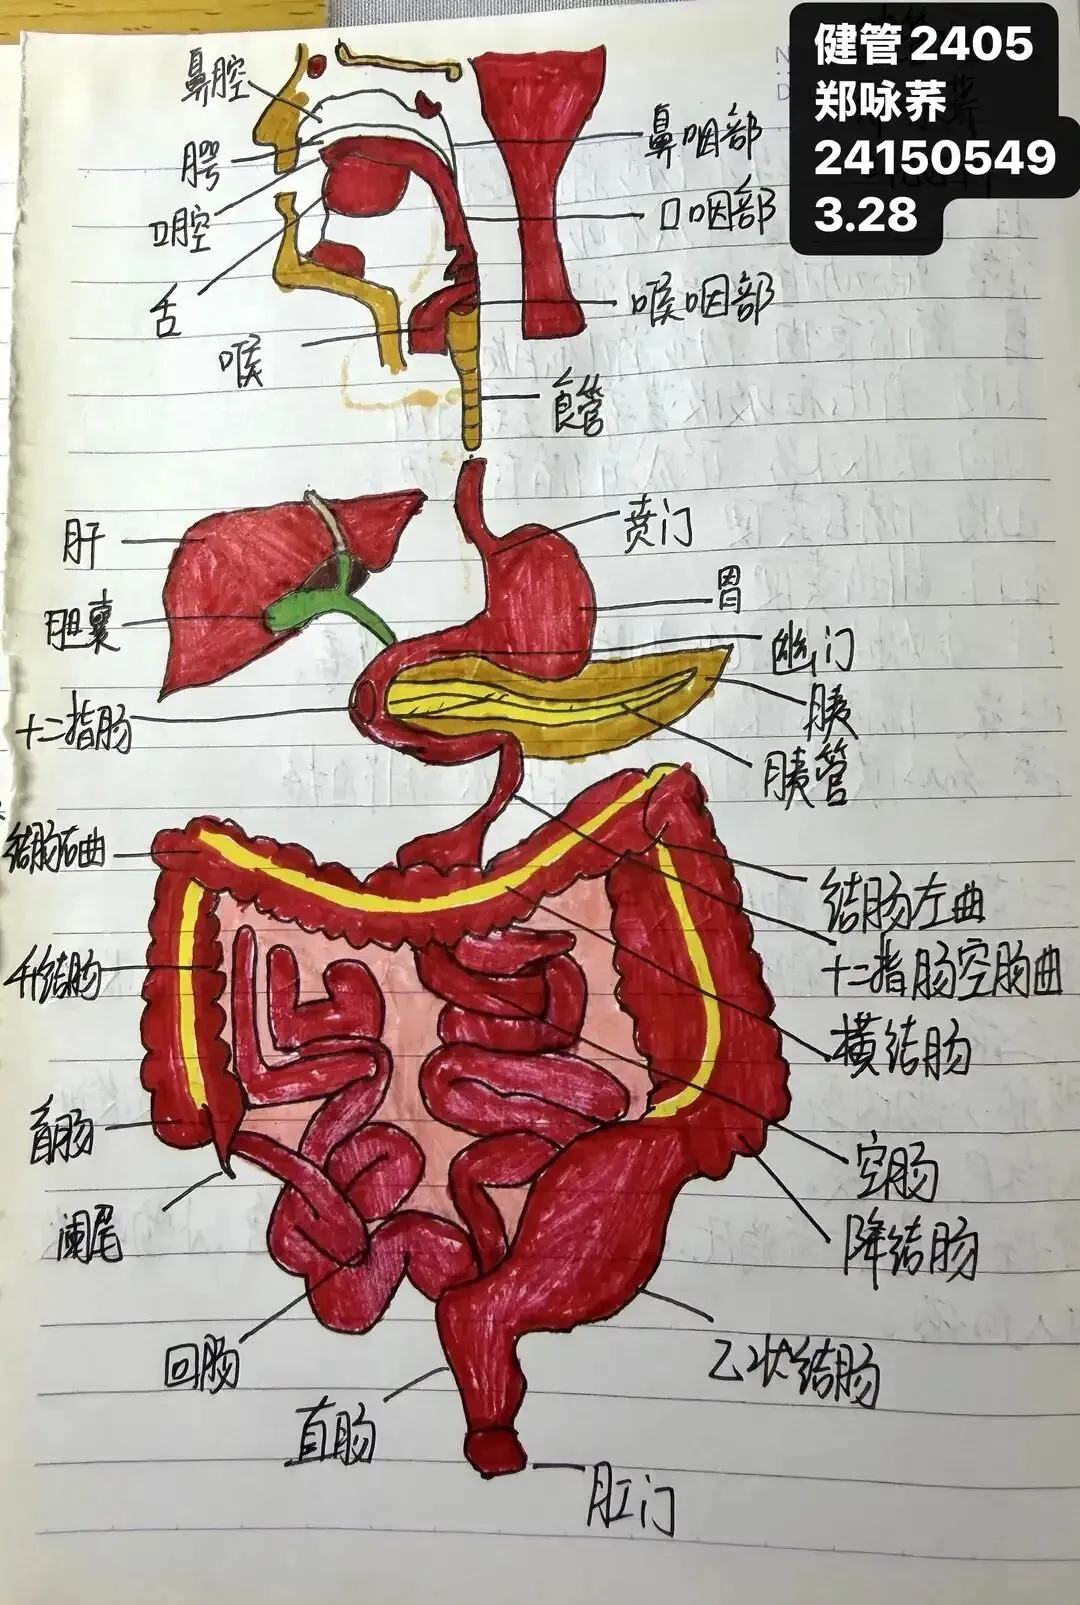 健管2405
郑咏荞
24150549
3.28
鼻腔
腭
口腔
舌
喉
鼻咽部
口咽部
喉咽部
食管
肝
胆囊
十二指肠
贲门
胃
幽门
胰
胰管
结肠右曲
升结肠
盲肠
阑尾
回肠
直肠
结肠左曲
十二指肠空肠曲
横结肠
空肠
降结肠
乙状结肠
肛门